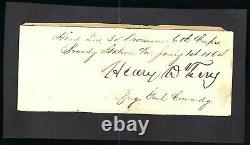 Head Qrs 3d Division 6th Corps
Brandy Station Va Jany 1st 1864
Henry D Terry
Brig Genl Comndg